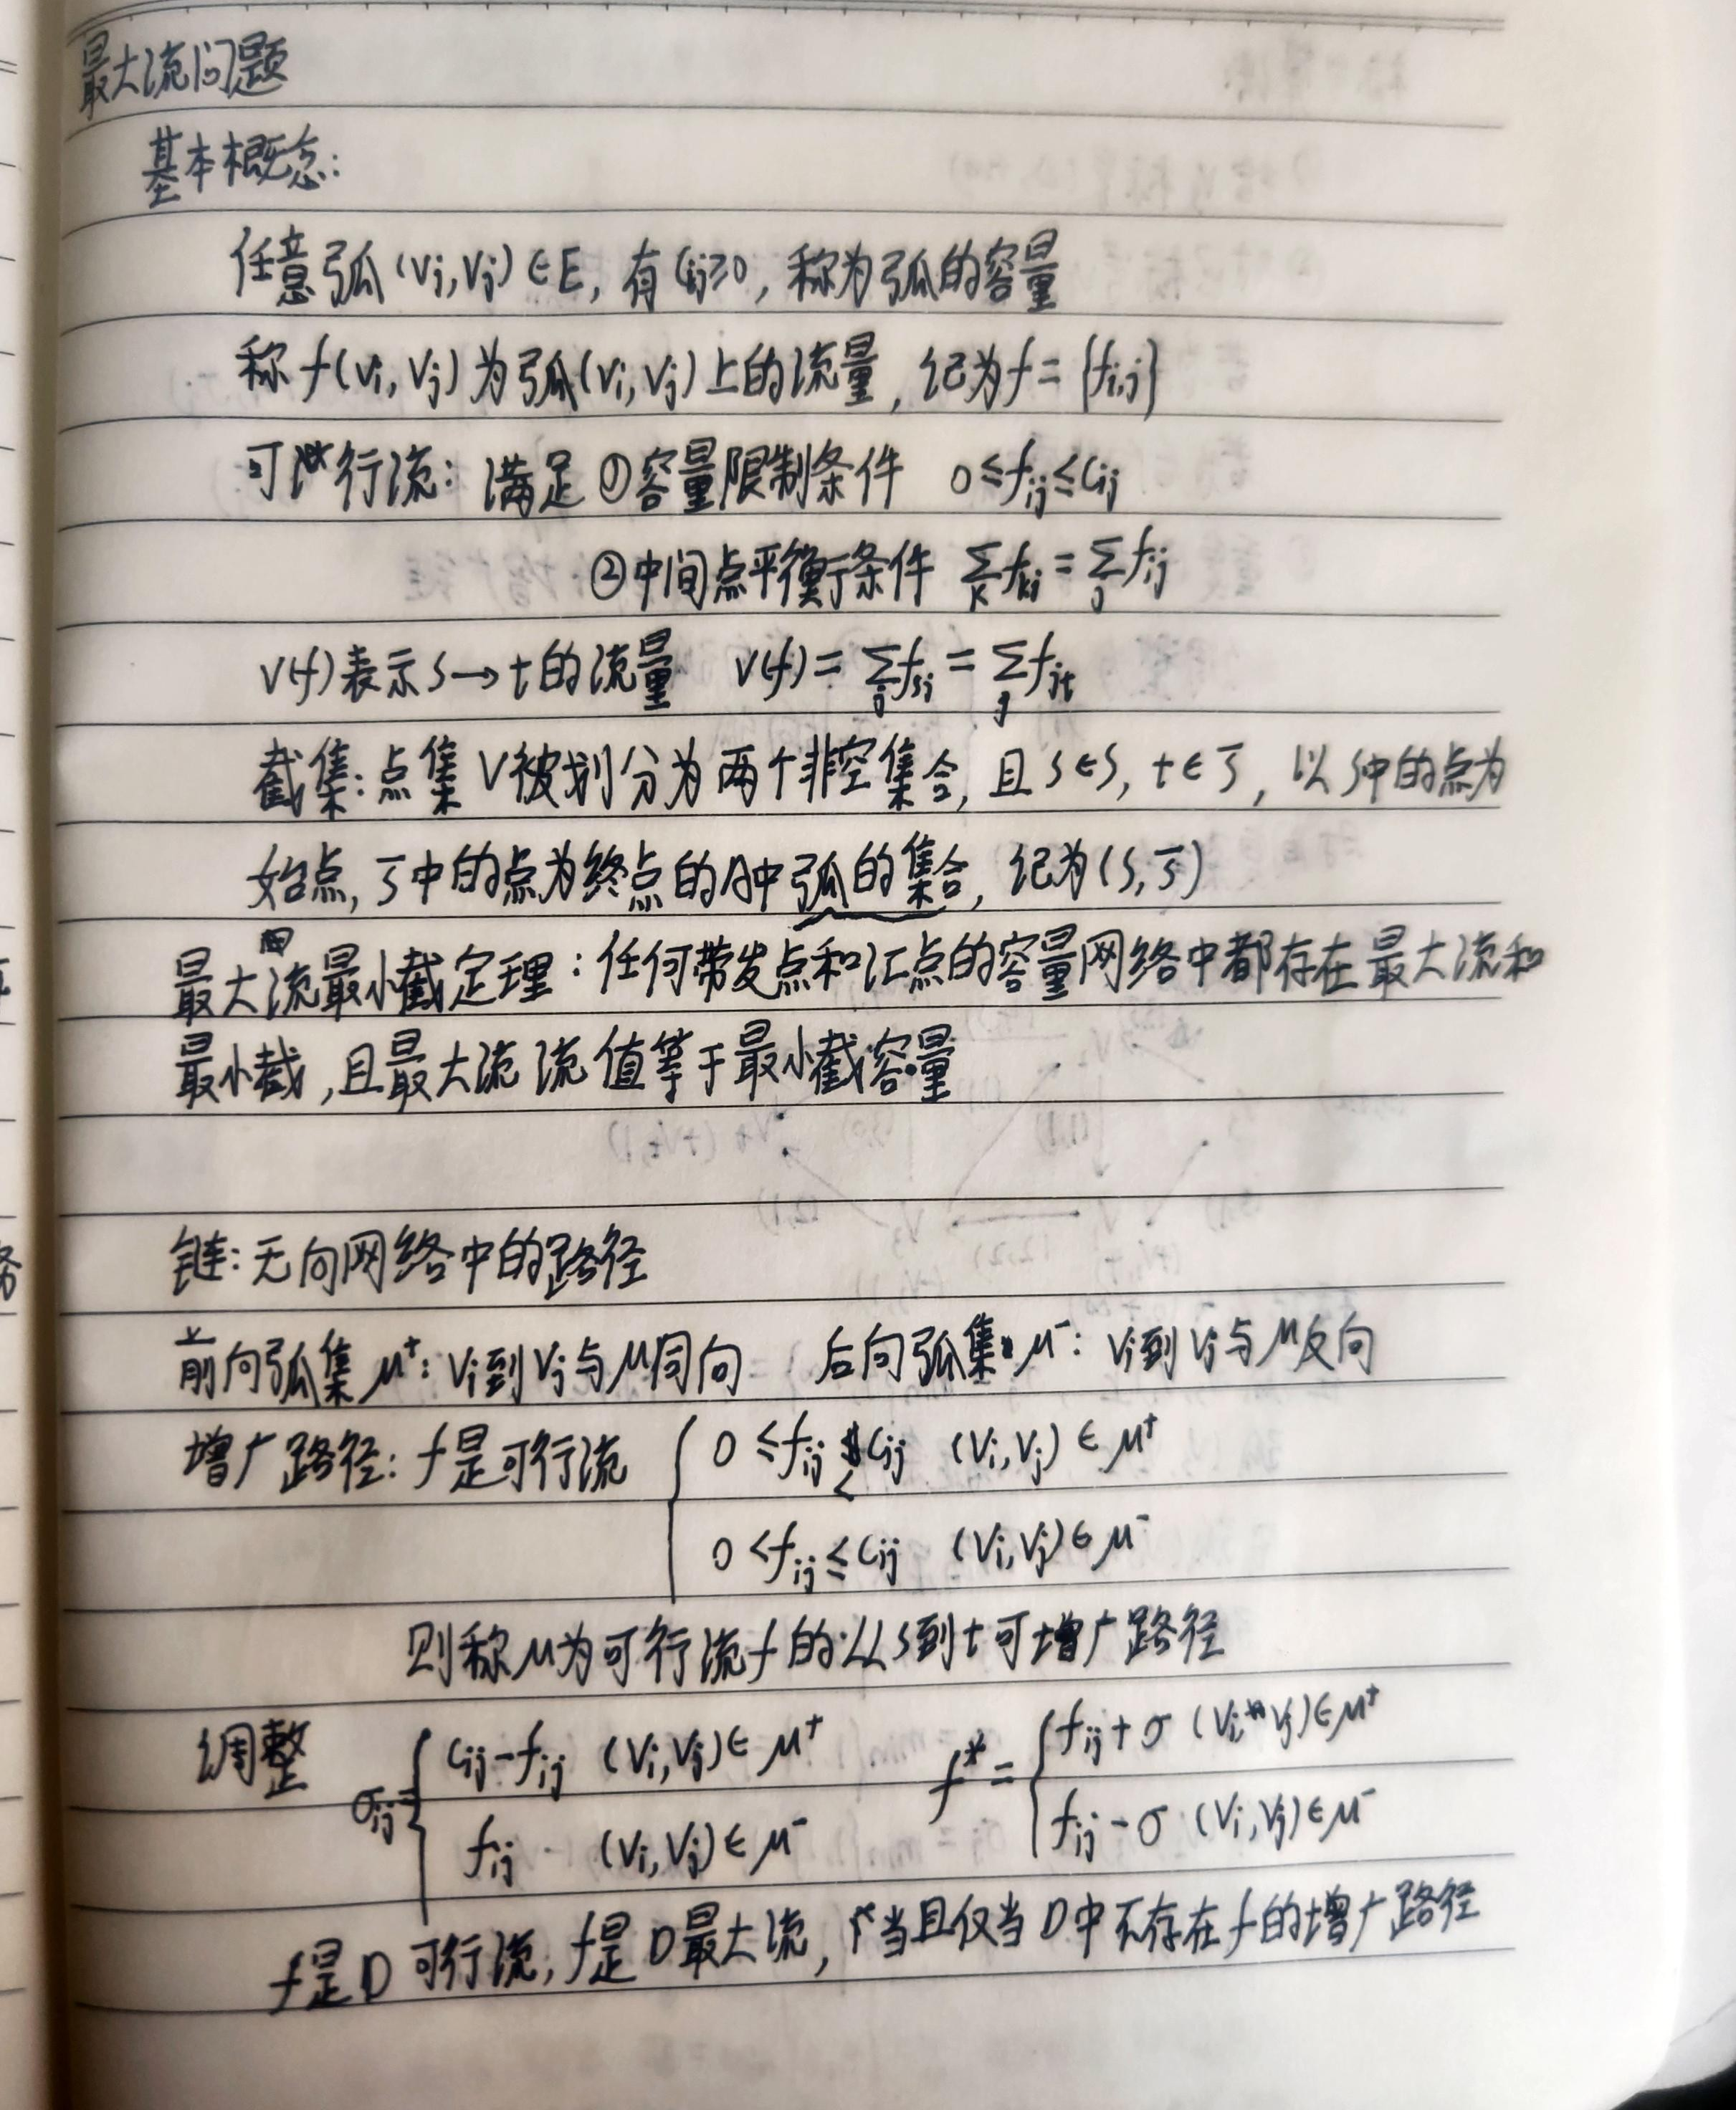 最大流问题
基本概念:
任意弧(vi,vj)∈E, 有cij≥0, 称为弧的容量
称f(vi,vj)为弧(vi,vj)上的流量, 记为f={fij}
可行流: 满足①容量限制条件 0≤fij≤cij
②中间点平衡条件 ∑k fki=∑j fij
v(f)表示s→t的流量 v(f)=∑j fsj=∑j fjt
截集:点集V被划分为两个非空集合, 且s∈S, t∈S̅, 以S中的点为
始点, S̅中的点为终点的A中弧的集合, 记为(S,S̅)
最大流最小截定理:任何带发点和汇点的容量网络中都存在最大流和
最小截,且最大流流值等于最小截容量
链:无向网络中的路径
前向弧集μ⁺:vi到vj与μ同向 后向弧集μ⁻: vi到vj与μ反向
增广路径: f是可行流 { 0≤fij<cij (vi,vj)∈μ⁺
0<fij≤cij (vi,vj)∈μ⁻
则称μ为可行流f的从s到t可增广路径
调整 σij={ cij-fij (vi,vj)∈μ⁺ f*={ fij+σ (vi,vj)∈μ⁺
fij (vi,vj)∈μ⁻ fij-σ (vi,vj)∈μ⁻
f是D可行流, f是D最大流, 当且仅当D中不存在f的增广路径